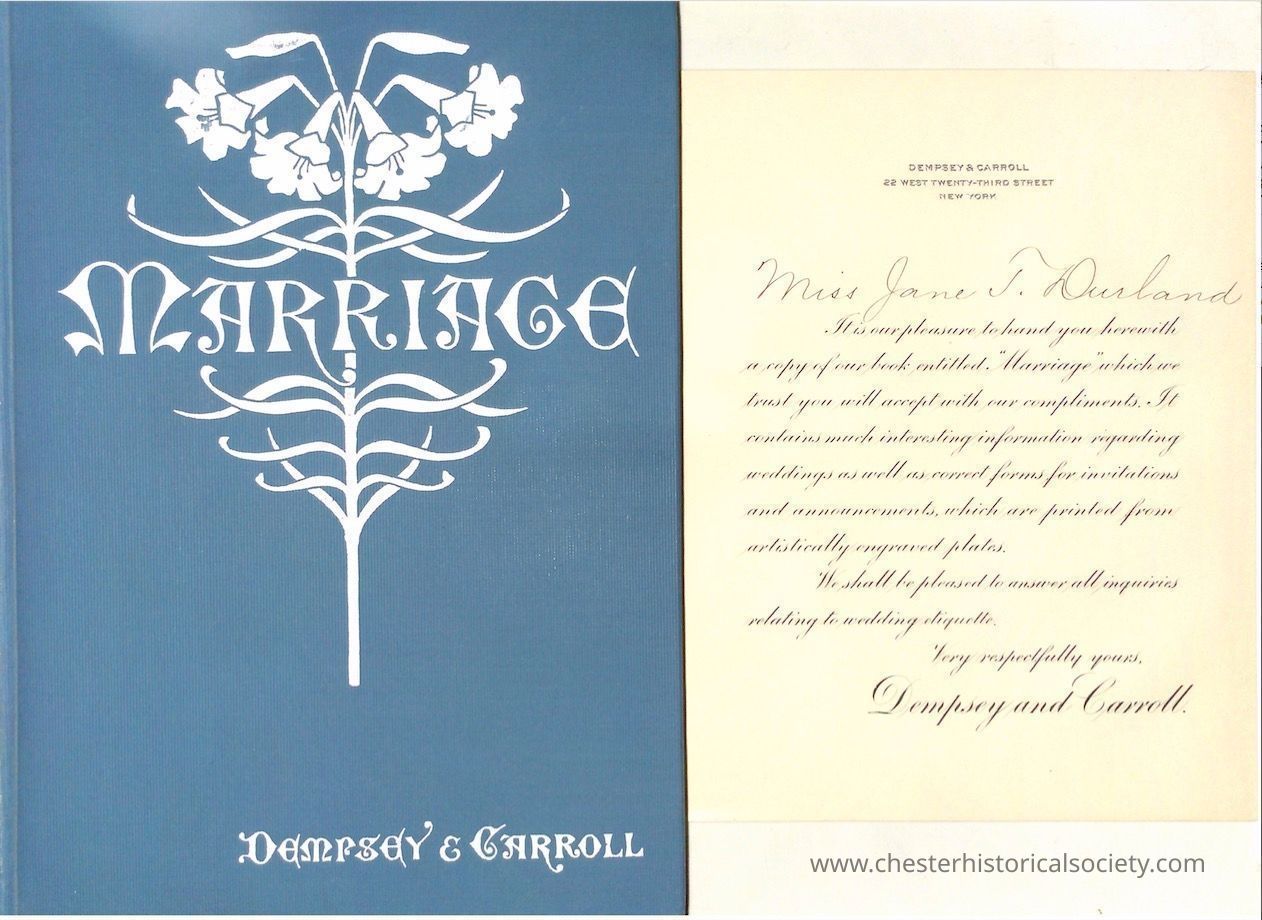 MARRIAGE
DEMPSEY & CARROLL
DEMPSEY & CARROLL
22 WEST TWENTY-THIRD STREET
NEW YORK
Miss Jane T. Durland
It is our pleasure to hand you herewith
a copy of our book entitled "Marriage" which we
trust you will accept with our compliments. It
contains much interesting information regarding
weddings as well as correct forms for invitations
and announcements, which are printed from
artistically engraved plates.
We shall be pleased to answer all inquiries
relating to wedding etiquette.
Very respectfully yours,
Dempsey and Carroll.
www.chesterhistoricalsociety.com